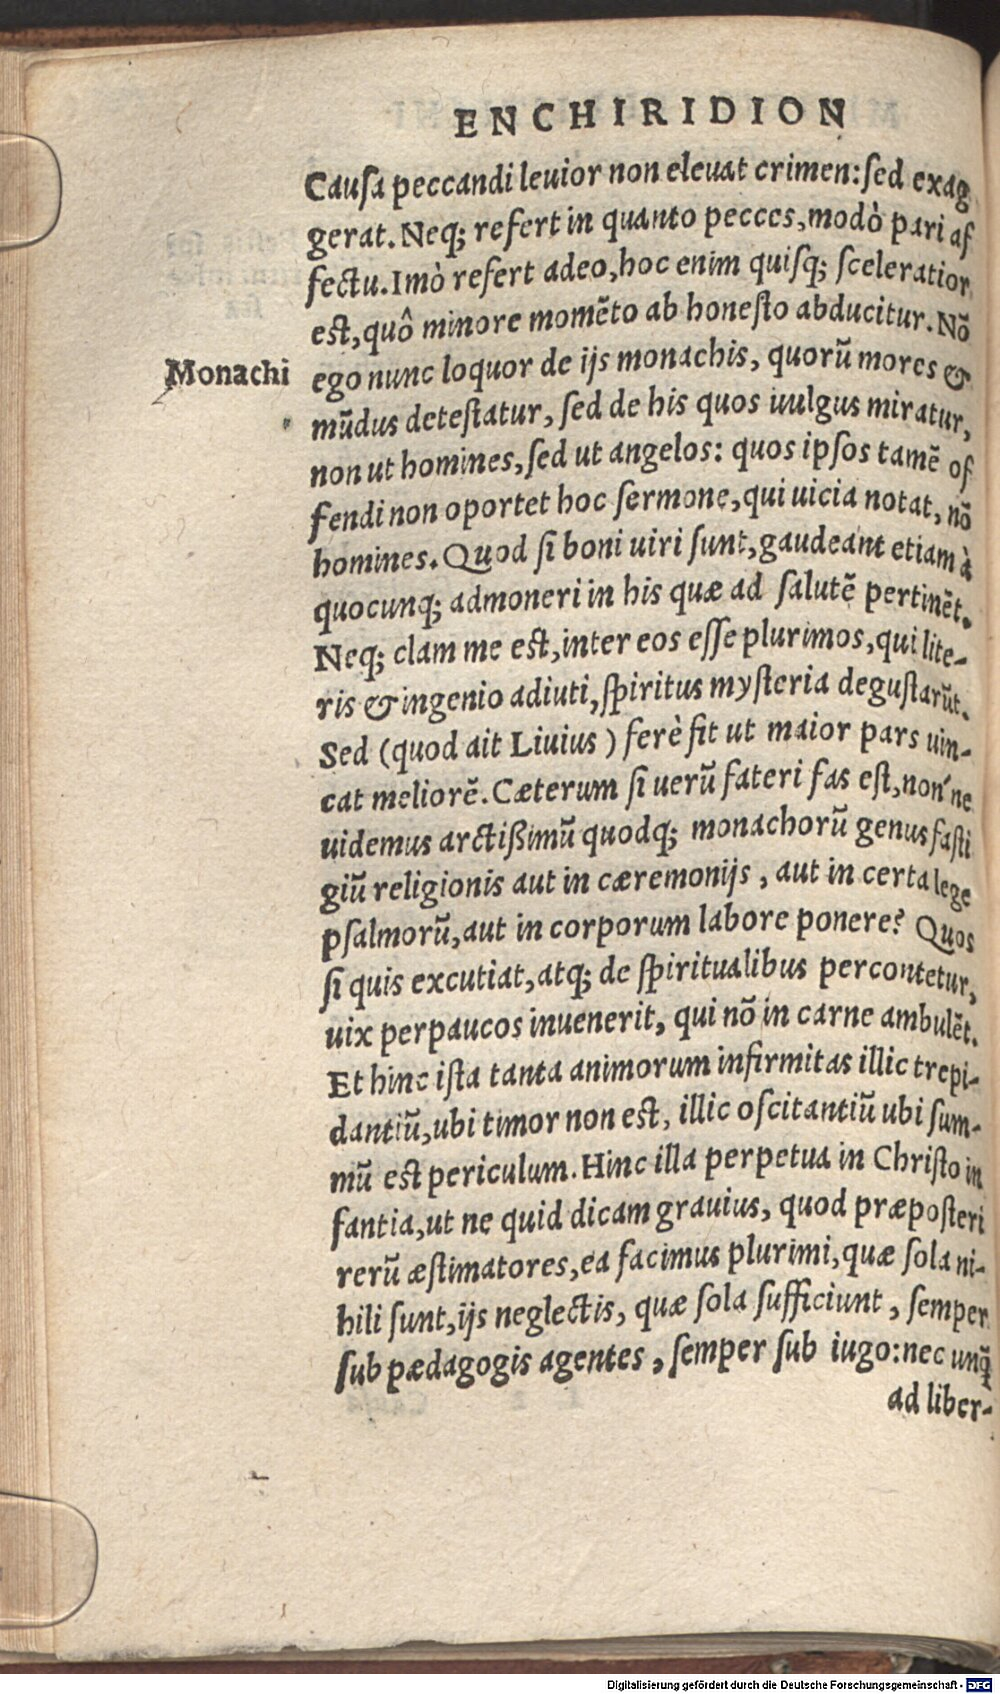 ENCHIRIDION
Causa peccandi leuior non eleuat crimen: sed exag
gerat. Neq; refert in quanto pecces, modò pari af
fectu. Imò refert adeo, hoc enim quisq; sceleratior
est, quô minore momēto ab honesto abducitur. Nō
Monachi
ego nunc loquor de ijs monachis, quorū mores &
mūdus detestatur, sed de his quos uulgus miratur,
non ut homines, sed ut angelos: quos ipsos tamē of
fendi non oportet hoc sermone, qui uicia notat, nō
homines. Quod si boni uiri sunt, gaudeant etiam à
quocunq; admoneri in his quæ ad salutē pertinēt.
Neq; clam me est, inter eos esse plurimos, qui lite-
ris & ingenio adiuti, spiritus mysteria degustarūt.
Sed (quod ait Liuius) ferè fit ut maior pars uin-
cat meliorē. Cæterum si uerū fateri fas est, non´ne
uidemus arctißimū quodq; monachorū genus fasti
giū religionis aut in cæremonijs, aut in certa lege
psalmorū, aut in corporum labore ponere? Quos
si quis excutiat, atq; de spiritualibus percontetur,
uix perpaucos inuenerit, qui nō in carne ambulēt.
Et hinc ista tanta animorum infirmitas illic trepi-
dantiū, ubi timor non est, illic oscitantiū ubi sum-
mū est periculum. Hinc illa perpetua in Christo in
fantia, ut ne quid dicam grauius, quod præposteri
rerū æstimatores, ea facimus plurimi, quæ sola ni-
hili sunt, ijs neglectis, quæ sola sufficiunt, semper
sub pædagogis agentes, semper sub iugo: nec unq̄
ad liber-
Digitalisierung gefördert durch die Deutsche Forschungsgemeinschaft - DFG